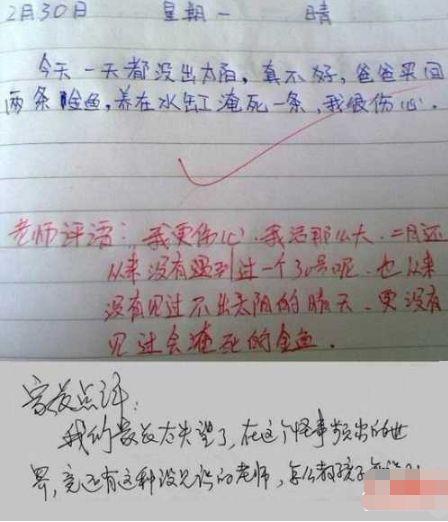 2月30日 星期一 晴
今天一天都没出太阳,真不好,爸爸买回
两条金鱼,养在水缸淹死一条,我很伤心.
老师评语:我更伤心.我活那么大.二月还
从来没有遇到过一个30号呢.也从来
没有见过不出太阳的晴天.更没有
见过会淹死的金鱼.
家长点评:
我的数次太失望了,在这个怪事频出的世
界,竟还有这种没见识的老师,怎么教孩子